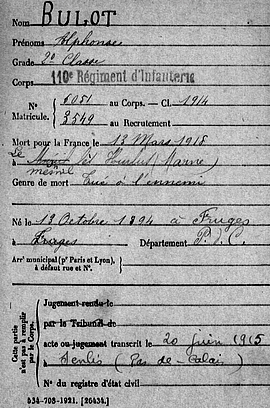 Nom BULOT
Prénoms Alphonse
Grade 2e Classe
Corps 110e Régiment d'Infanterie
N° 8051 au Corps. — Cl. 1914
Matricule. 3549 au Recrutement
Mort pour la France le 13 Mars 1915
Le
à lès Hurlus (Marne)
mesnil
Genre de mort Tué à l'ennemi
Né le 13 Octobre 1894 à Fruges
à Fruges Département P.d.C.
Arr' municipal (p' Paris et Lyon),
à défaut rue et N°.
Cette partie
n'est pas à remplir
par le Corps.
Jugement rendu le
par le Tribunal de
acte ou jugement transcrit le 20 juin 1915
à Senlis (Pas-de-Calais)
N° du registre d'état civil
534-708-1921. [26434.]